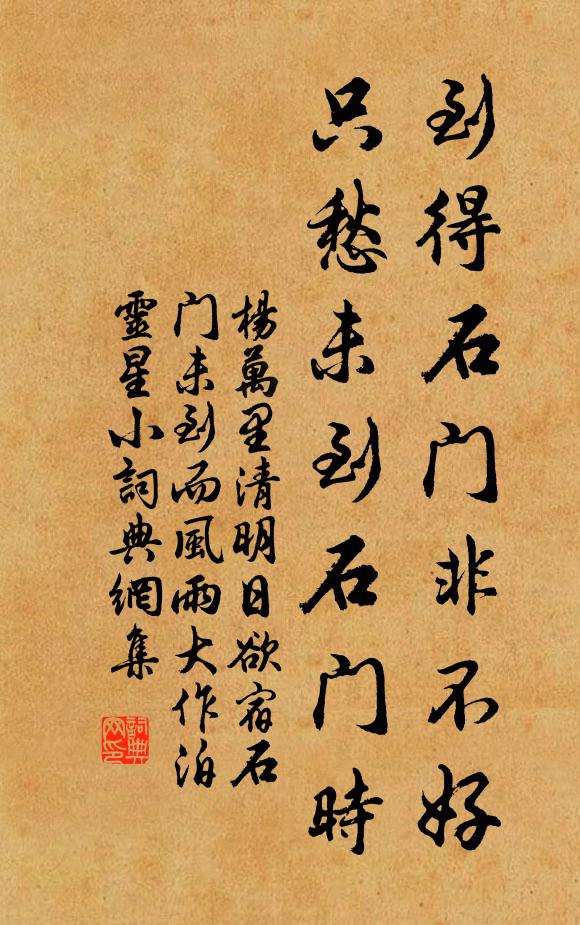 到得石门非不好
只愁未到石门時
楊萬里清明日欲宿石
门未到而風雨大作泊
靈星小詞典網集
詞典
网印